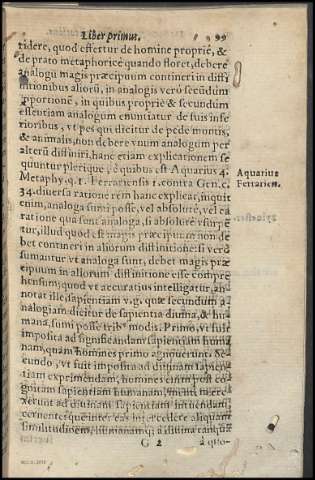 Liber primus. 99
ridere, quod effertur de homine propriè, &
de prato metaphoricè quando floret, debere
analogũ magis præcipuum contineri in diffi
nitionibus aliorũ, in analogis verò secũdum
pportionẽ, in quibus propriè & secundum
essentiam analogum enuntiatur de suis infe
rioribus, vt pes qui dicitur de pede montis,
& animalis, non debere vnum analogum per
alterũ diffiniri, hanc etiam explicationem se
quuntur plerique, è quibus est Aquarius 4.
Metaphy. q. 1. Ferrariensis 1. contra Gen. c.
34. diversa ratione rem hanc explicat, inquit
enim, analoga sumi posse, vel absolutè, vel ea
ratione qua sunt analoga, si absolutè vsurpẽ
tur, illud quod est magis præcipuum non de
bet contineri in aliorum diffinitione: si verò
sumantur vt analoga sunt, debet magis præ
cipuum in aliorum diffinitione esse compre
hensum; quod vt accuratius intelligatur, an-
notat ille, sapientiam v. g. quæ secundum a-
nalogiam dicitur de sapientia divina, & hu
mana, sumi posse tribꝰ modis. Primo, vt fuit
imposita ad significandam sapientiam huma
nam, quam homines primo agnouerunt: Se
cundo, vt fuit imposita ad diuinam sapien
tiam exprimendam, homines enim post co
gnitam sapientiam humanam, mentẽ
ad diuinam sapientiam intuendam,
cernentes que inter eas intercedere aliquam
similitudinem,
G 2 à quo-
Aquarius
Ferrarien.